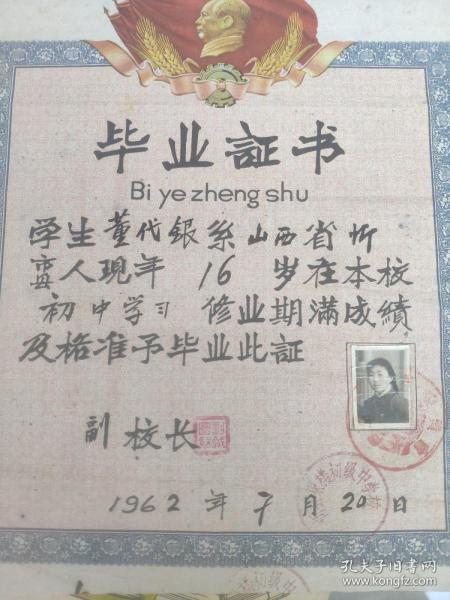 毕业証书
Bi ye zheng shu
学生董代银系山西省忻
县人现年 16 岁在本校
初中学习 修业期满成績
及格准予毕业此証
副校长
1962年 月20日
初级中学校
孔夫子旧书网
www.kongfz.com